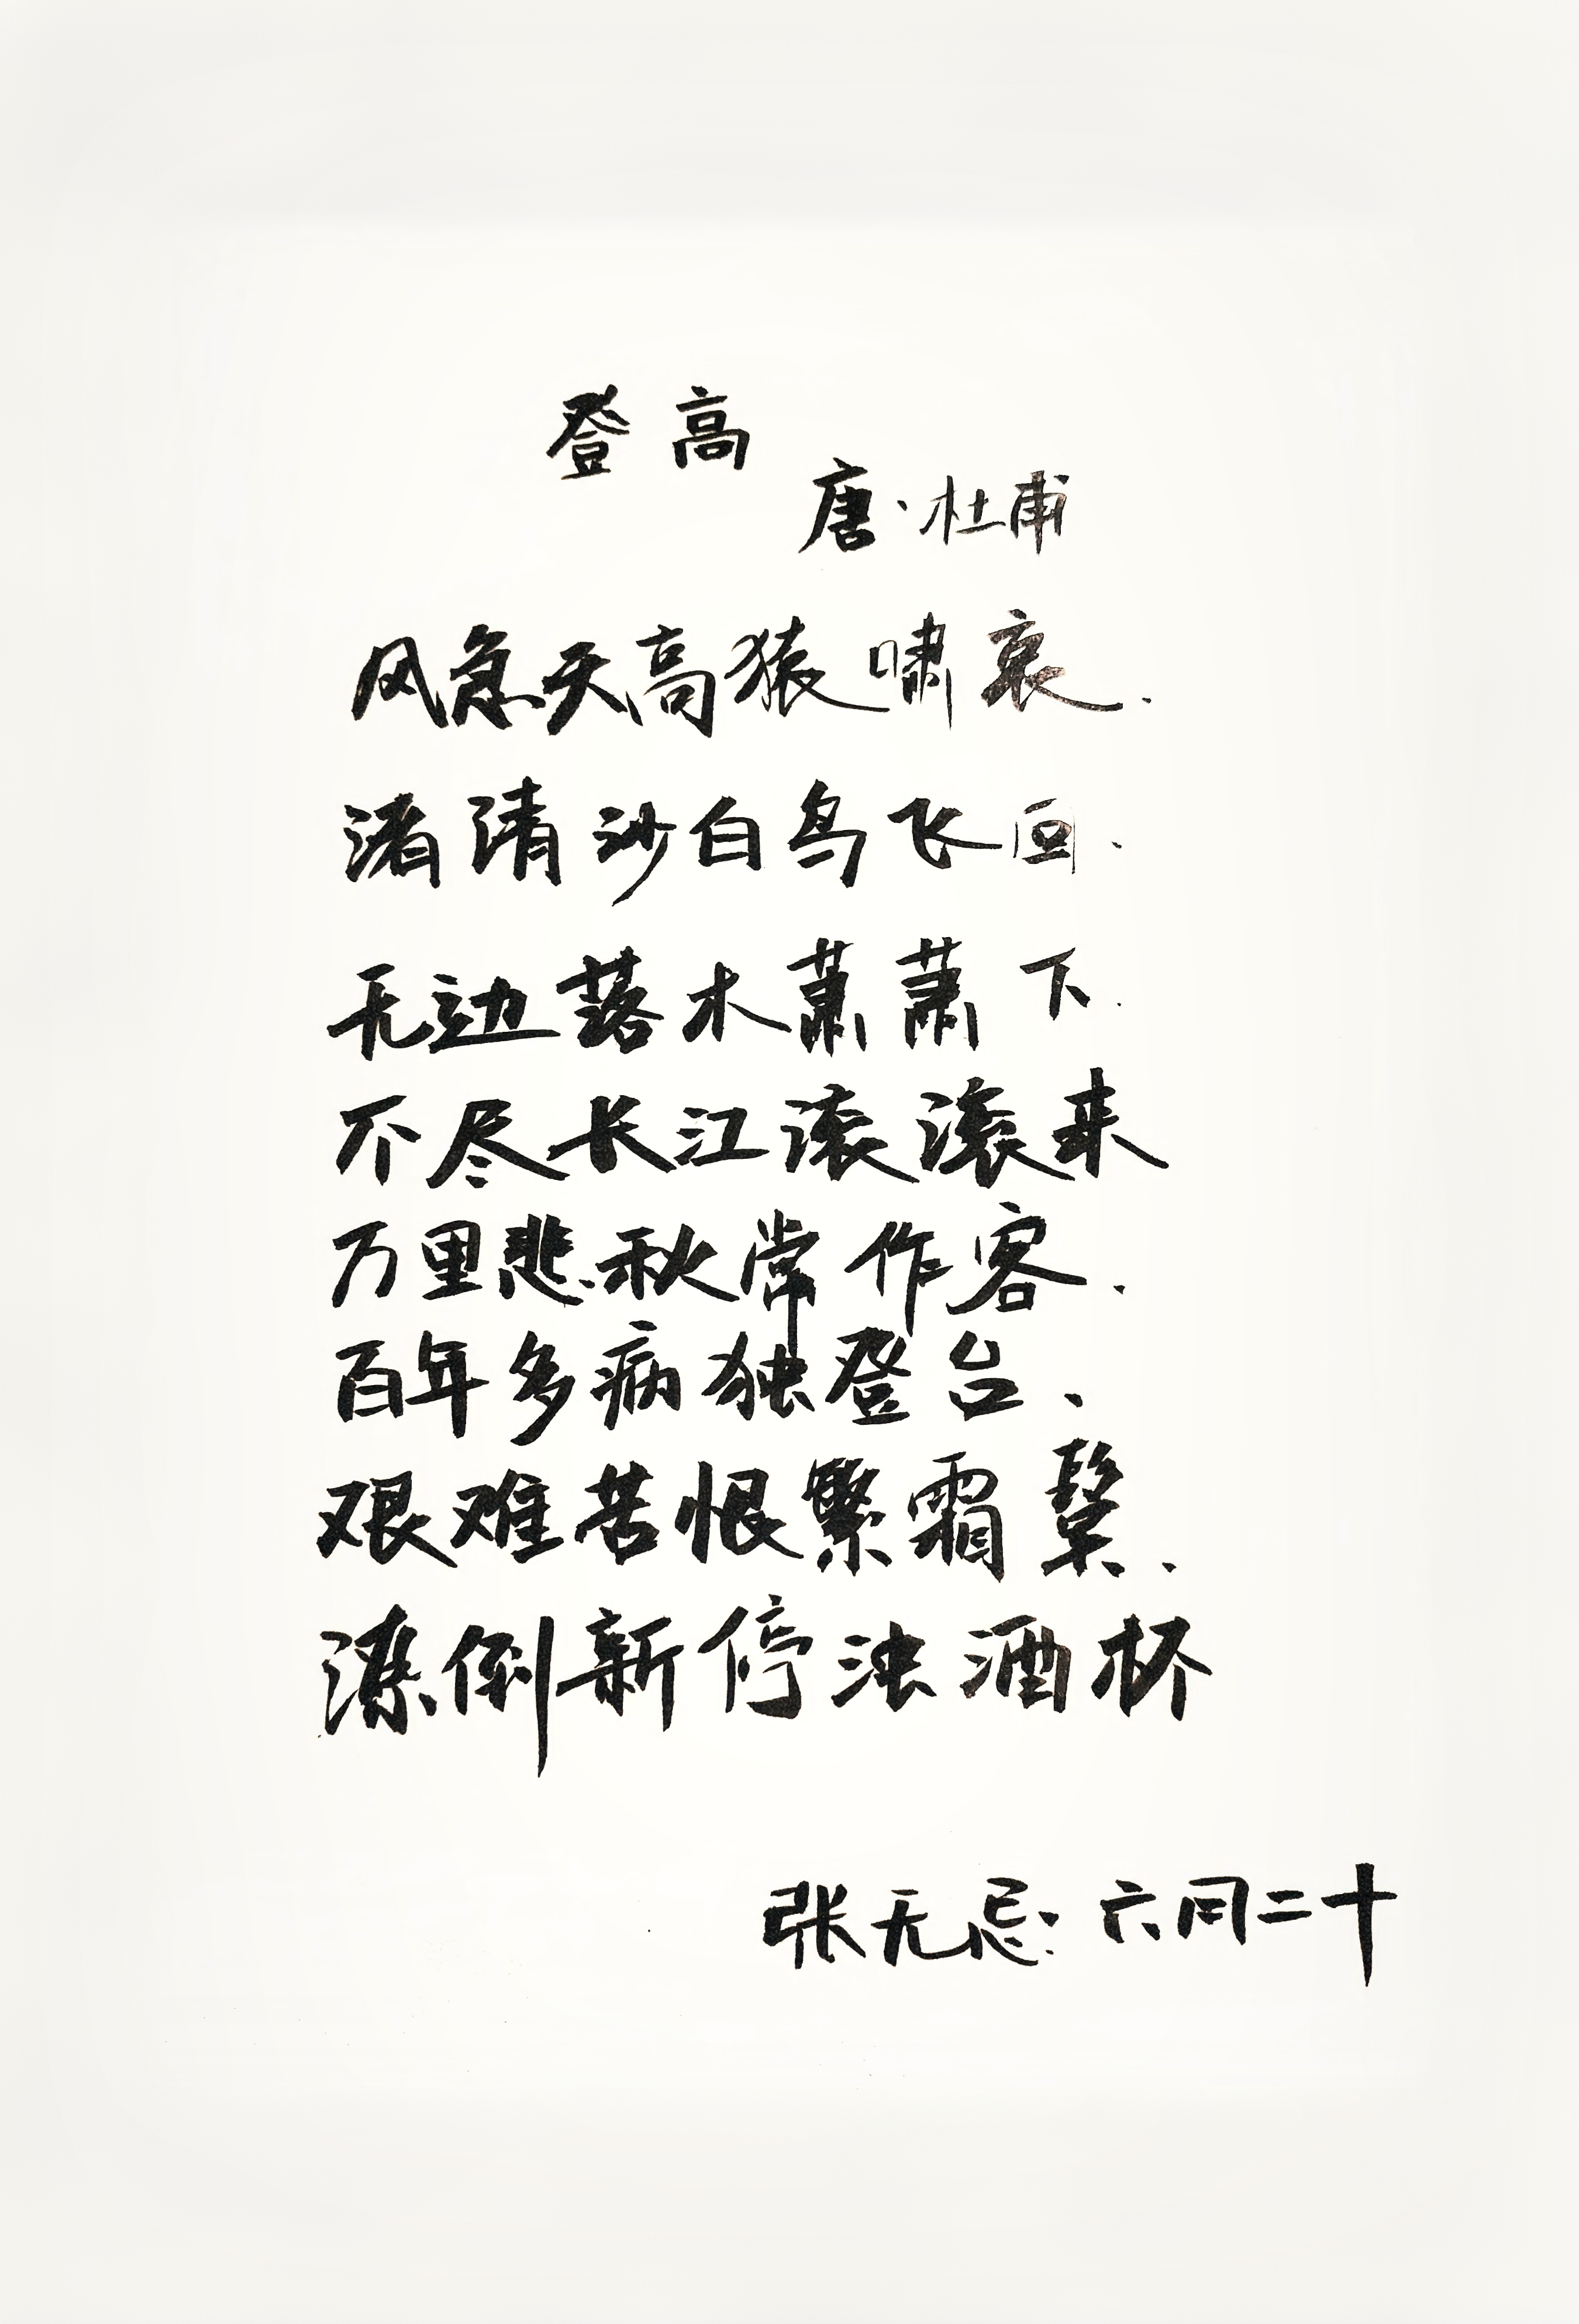 登高
唐·杜甫
风急天高猿啸哀.
渚清沙白鸟飞回.
无边落木萧萧下.
不尽长江滚滚来
万里悲秋常作客.
百年多病独登台、
艰难苦恨繁霜鬓.
潦倒新停浊酒杯
张无忌: 六月二十